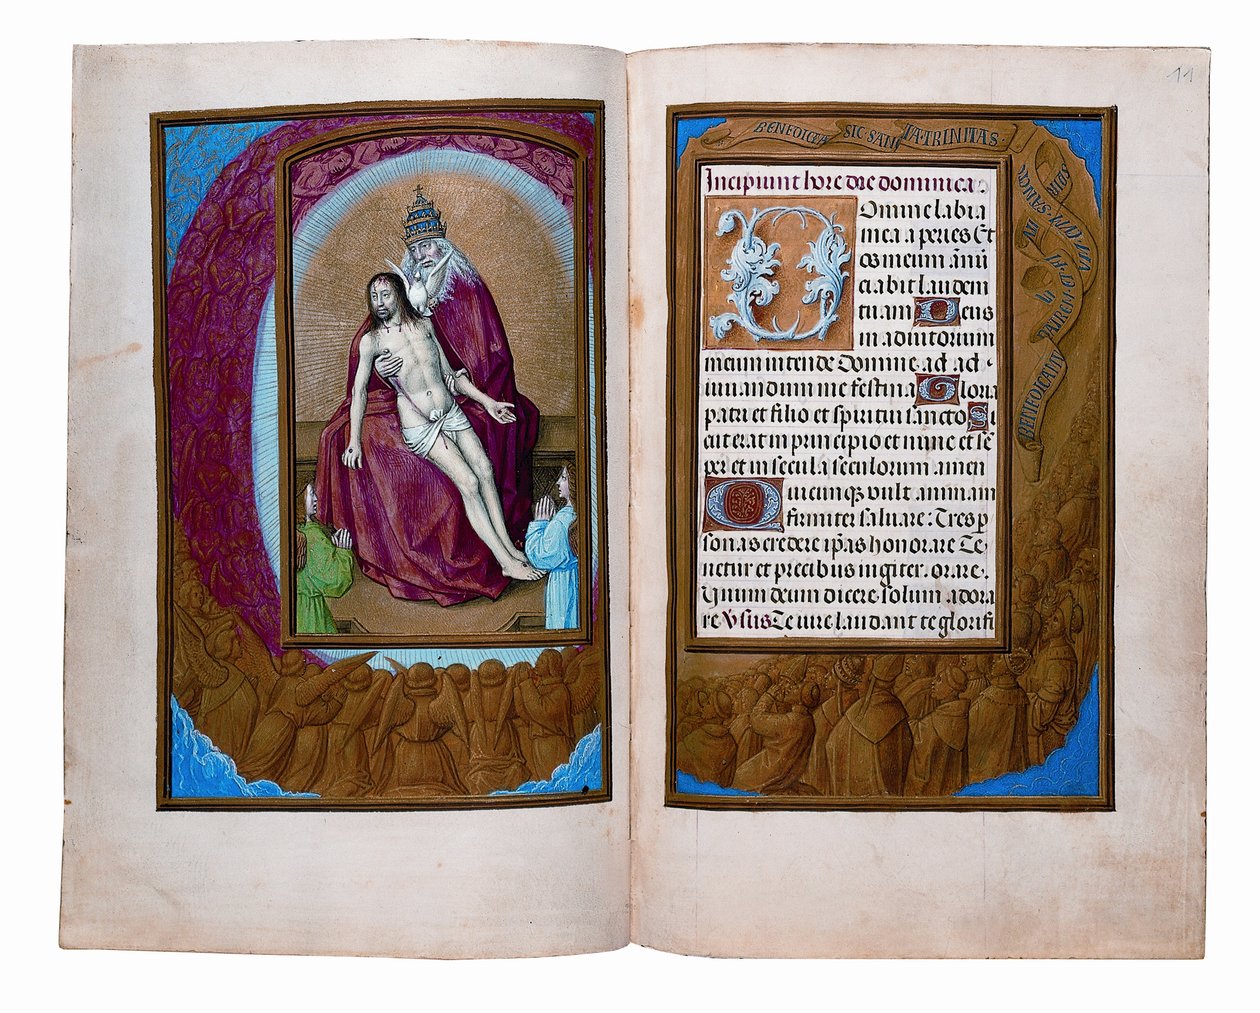 11
BENEDICTA SIC SANCTA TRINITAS
BENEDICAMUS PATREM ET FI
Incipiunt hore die dominica.
Domine labia
mea aperies Et
os meum annū
ciabit laudem
tuam Deus
in adiutorium
meum intende Domine ad ad
iuuandum me festina Gloria
patri et filio et spiritui sancto Si
cut erat in principio et nunc et sē
per et in secula seculorum amen
Quicunqꝫ vult animam
firmiter saluare: Tres p
sonas credere ipas honorare Te
netur et precibus iugiter orare.
Unum deum dicere solum adora
re Vsus Te iure laudant te glorifi